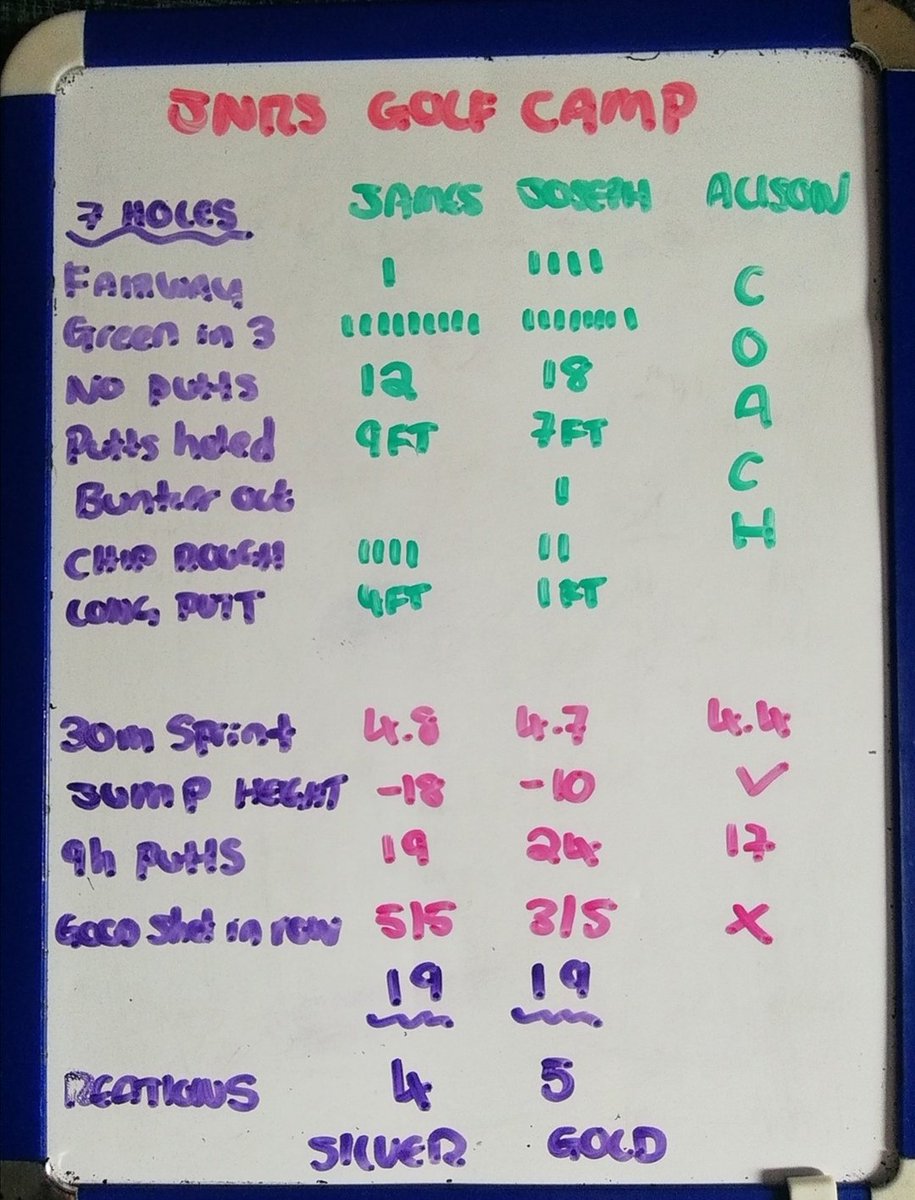 JNRS GOLF CAMP
7 HOLES JAMES JOSEPH ALISON
FAIRWAY I IIII C
Green in 3 IIIIIIIII IIIIIIII O
NO PUTTS 12 18 A
Putts holed 9FT 7FT C
Bunker out I H
CHIP ROUGH IIII II
LONG PUTT 4FT 1FT
30m Sprint 4.8 4.7 4.4
JUMP HEIGHT -18 -10 ✓
9h PUTTS 19 24 17
GOOD Shot in row 5/5 3/5 X
19 19
REATIONS 4 5
SILVER GOLD